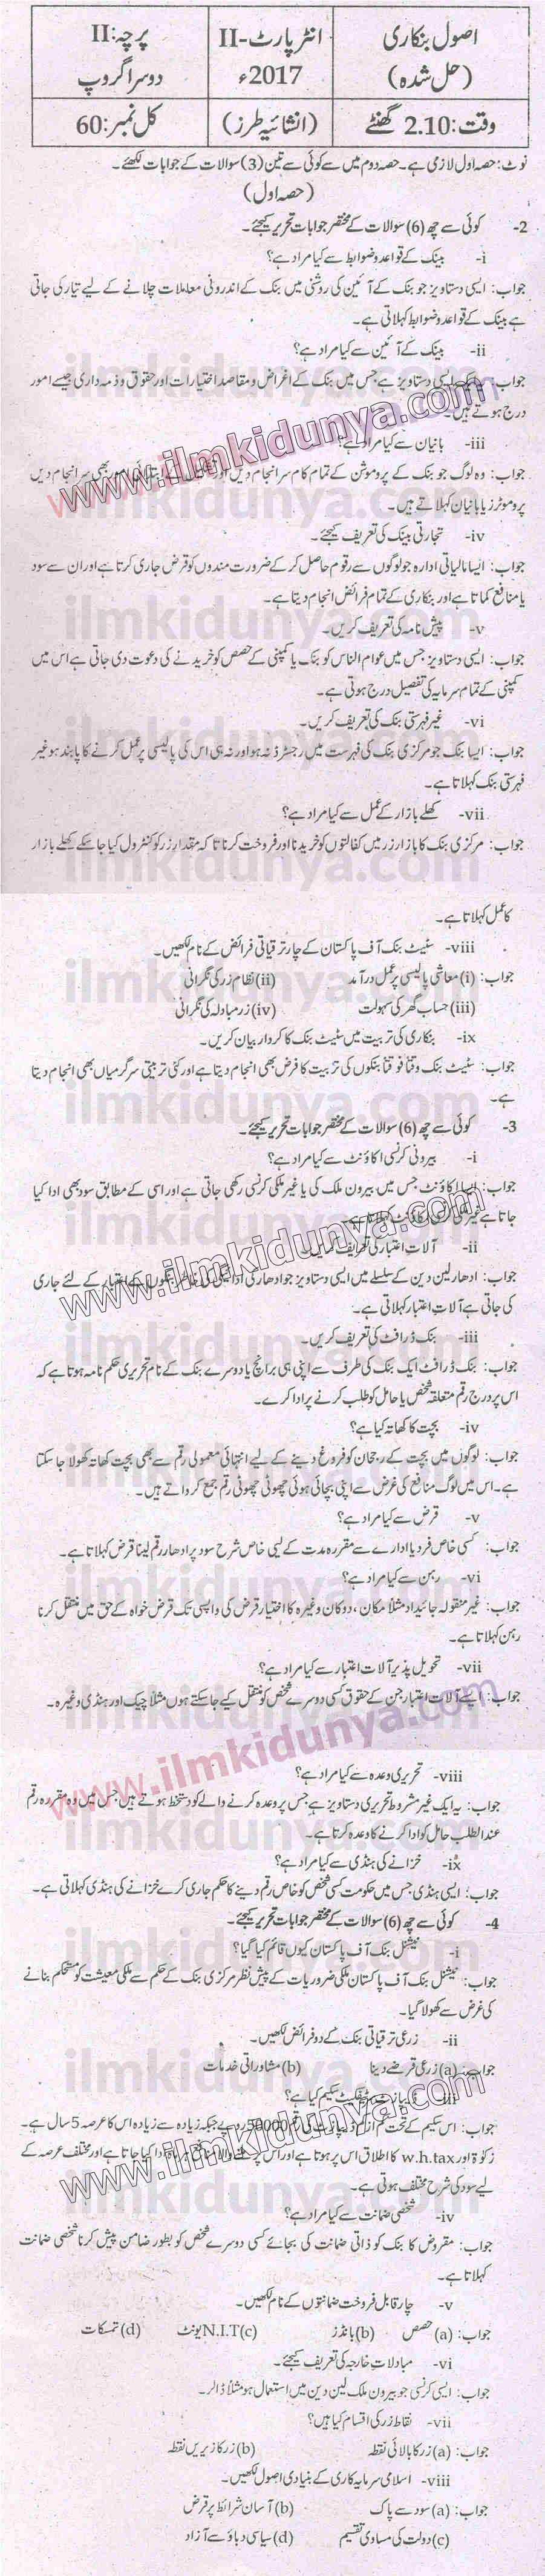 اصول بنکاری
(حل شدہ)
انٹر پارٹ-II
2017ء
پرچہ: II
دوسرا گروپ
وقت: 2.10 گھنٹے
(انشائیہ طرز)
کل نمبر: 60
نوٹ: حصہ اول لازمی ہے۔ حصہ دوم میں سے کوئی سے تین (3) سوالات کے جوابات لکھئے۔
(حصہ اول)
2- کوئی سے چھ (6) سوالات کے مختصر جوابات تحریر کیجئے۔
i- بینک کے قواعد و ضوابط سے کیا مراد ہے؟
جواب: ایسی دستاویز جو بنک کے آئین کی روشنی میں بنک کے اندرونی معاملات چلانے کے لیے تیار کی جاتی
ہے بینک کے قواعد و ضوابط کہلاتی ہے۔
ii- بینک کے آئین سے کیا مراد ہے؟
جواب: ایسی دستاویز ہے جس میں بنک کے اغراض و مقاصد اختیارات اور حقوق و ذمہ داری جیسے امور
درج ہوتے ہیں۔
iii- بانیان سے کیا مراد ہے؟
جواب: وہ لوگ جو بنک کے پروموشن کے تمام کام سرانجام دیں اور بھی سرانجام دیں
پروموٹرز یا بانیان کہلاتے ہیں۔
iv- تجارتی بینک کی تعریف کیجئے۔
جواب: ایسا مالیاتی ادارہ جو لوگوں سے رقوم حاصل کر کے ضرورت مندوں کو قرض جاری کرتا ہے اور ان سے سود
یا منافع کماتا ہے اور بنکاری کے تمام فرائض انجام دیتا ہے۔
v- پیش نامہ کی تعریف کریں۔
جواب: ایسی دستاویز جس میں عوام الناس کو بنک یا کمپنی کے حصص کو خریدنے کی دعوت دی جاتی ہے اس میں
کمپنی کے تمام سرمایہ کی تفصیل درج ہوتی ہے۔
vi- غیر فہرستی بنک کی تعریف کریں۔
جواب: ایسا بنک جو مرکزی بنک کی فہرست میں رجسٹرڈ نہ ہو اور نہ ہی اس کی پالیسی پر عمل کرنے کا پابند ہو غیر
فہرستی بنک کہلاتا ہے۔
vii- کھلے بازار کے عمل سے کیا مراد ہے؟
جواب: مرکزی بنک کا بازار زر میں کفالتوں کو خریدنا اور فروخت کرنا تاکہ مقدار زر کو کنٹرول کیا جا سکے کھلے بازار
کا عمل کہلاتا ہے۔
viii- سٹیٹ بنک آف پاکستان کے چار ترقیاتی فرائض کے نام لکھیں۔
جواب: (i) معاشی پالیسی پر عمل درآمد (ii) نظام زر کی نگرانی
(iii) حساب گھر کی سہولت (iv) زر مبادلہ کی نگرانی
ix- بنکاری کی تربیت میں سٹیٹ بنک کا کردار بیان کریں۔
جواب: سٹیٹ بنک وقتاً فوقتاً بنکوں کی تربیت کا فرض بھی انجام دیتا ہے اور کئی تربیتی سرگرمیاں بھی انجام دیتا
ہے۔
3- کوئی سے چھ (6) سوالات کے مختصر جوابات تحریر کیجئے۔
i- بیرونی کرنسی اکاؤنٹ سے کیا مراد ہے؟
جواب: ایسا اکاؤنٹ جس میں بیرون ملک کی یا غیر ملکی کرنسی رکھی جاتی ہے اور اسی کے مطابق سود بھی ادا کیا
جاتا ہے غیر ملکی کرنسی اکاؤنٹ کہلاتا ہے۔
ii- آلات اعتبار کی تعریف کریں۔
جواب: ادھار لین دین کے سلسلے میں ایسی دستاویز جو ادھار کی ادائیگی اعتبار کے لئے جاری
کی جاتی ہے آلات اعتبار کہلاتی ہے۔
iii- بنک ڈرافٹ کی تعریف کریں۔
جواب: بنک ڈرافٹ ایک بنک کی طرف سے اپنی ہی برانچ یا دوسرے بنک کے نام تحریری حکم نامہ ہوتا ہے کہ
اس پر درج رقم متعلقہ شخص یا حامل کو طلب کرنے پر ادا کرے۔
iv- بچت کا کھاتہ کیا ہے؟
جواب: لوگوں میں بچت کے رجحان کو فروغ دینے کے لیے انتہائی معمولی رقم سے بھی بچت کھاتہ کھولا جا سکتا
ہے۔ اس میں لوگ منافع کی غرض سے اپنی بچائی ہوئی چھوٹی چھوٹی رقم جمع کرواتے ہیں۔
v- قرض سے کیا مراد ہے؟
جواب: کسی خاص فرد یا ادارے سے مقررہ مدت کے لیے خاص شرح سود پر ادھار رقم لینا قرض کہلاتا ہے۔
vi- رہن سے کیا مراد ہے؟
جواب: غیر منقولہ جائیداد مثلاً مکان، دوکان وغیرہ کا اختیار قرض کی واپسی تک قرض خواہ کے حق میں منتقل کرنا
رہن کہلاتا ہے۔
vii- تحویل پذیر آلات اعتبار سے کیا مراد ہے؟
جواب: ایسے آلات اعتبار جن کے حقوق کسی دوسرے شخص کو منتقل کیے جا سکتے ہوں مثلاً چیک اور ہنڈی وغیرہ۔
viii- تحریری وعدہ سے کیا مراد ہے؟
جواب: یہ ایک غیر مشروط تحریری دستاویز ہے جس پر وعدہ کرنے والے کو دستخط ہوتے ہیں جس میں وہ مقررہ رقم
عند الطلب حامل کو ادا کرنے کا وعدہ کرتا ہے۔
ix- خزانے کی ہنڈی سے کیا مراد ہے؟
جواب: ایسی ہنڈی جس میں حکومت کسی شخص کو خاص رقم دینے کا حکم جاری کرے خزانے کی ہنڈی کہلاتی ہے۔
4- کوئی سے چھ (6) سوالات کے مختصر جوابات تحریر کیجئے۔
i- نیشنل بنک آف پاکستان کیوں قائم کیا گیا؟
جواب: نیشنل بنک آف پاکستان ملکی ضروریات کے پیش نظر مرکزی بنک کے حکم سے ملکی معیشت کو مستحکم بنانے
کی غرض سے کھولا گیا۔
ii- زرعی ترقیاتی بنک کے دو فرائض لکھیں۔
جواب: (a) زرعی قرضے دینا (b) مشاورتی خدمات
iii- سکیم کیا ہے؟
جواب: اس سکیم کے تحت کم از کم 50000 روپے جبکہ زیادہ سے زیادہ اس کا عرصہ 5 سال ہے۔
زکوٰۃ اور w.h.tax کا اطلاق اس پر ہوتا ہے اور اس پر ادا کیا جاتا ہے اور مختلف عرصہ کے
لیے سود کی شرح مختلف ہوتی ہے۔
iv- شخصی ضمانت سے کیا مراد ہے؟
جواب: مقروض کا بنک کو ذاتی ضمانت کی بجائے کسی دوسرے شخص کو بطور ضامن پیش کرنا شخصی ضمانت
کہلاتا ہے۔
v- چار قابل فروخت ضمانتوں کے نام لکھیں۔
جواب: (a) حصص (b) بانڈز (c) N.I.T یونٹ (d) تمسکات
vi- مبادلات خارجہ کی تعریف کیجئے۔
جواب: ایسی کرنسی جو بیرون ملک لین دین میں استعمال ہو مثلاً ڈالر۔
vii- نقاط زر کی اقسام کیا ہیں؟
جواب: (a) زر کا بالائی نقطہ (b) زر کا زیریں نقطہ
viii- اسلامی سرمایہ کاری کے بنیادی اصول لکھیں۔
جواب: (a) سود سے پاک (b) آسان شرائط پر قرض
(c) دولت کی مساوی تقسیم (d) سیاسی دباؤ سے آزاد
www.ilmkidunya.com
www.ilmkidunya.com
www.ilmkidunya.com
www.ilmkidunya.com